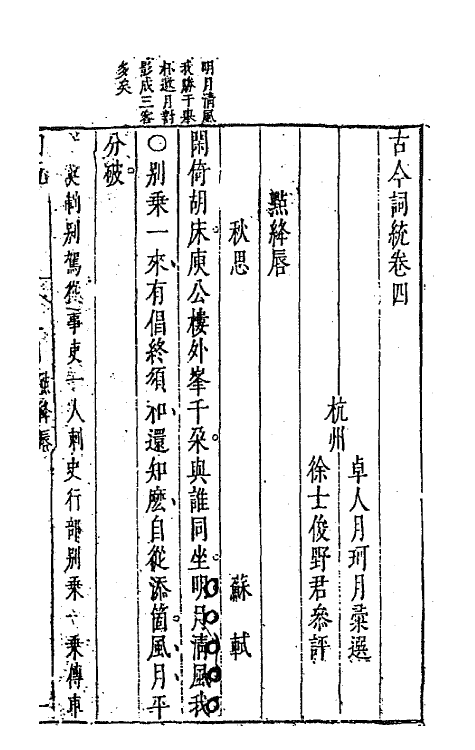 明月清風
我勝于舉
杯邀月對
影成三客
多矣
古今詞統卷四
杭州
卓人月珂月彙選
徐士俊野君參評
點絳唇
秋思
蘇軾
閑倚胡床庾公樓外峯千朶與誰同坐明月清風我
○別乗一來有倡終須和還知麽自從添箇風月平
分破
漢制别駕從事吏一人刺史行部别乗一乗傳車